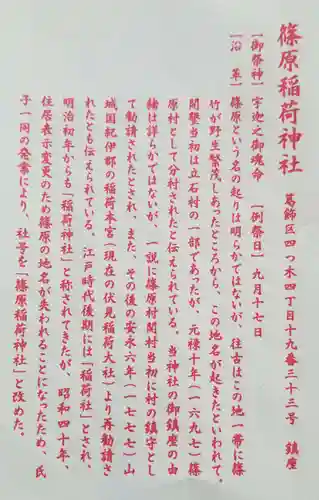 篠原稲荷神社
葛飾区四つ木四丁目十九番三十三号　鎮座
【御祭神】宇迦之御魂命　【例祭日】九月十七日
【沿　革】篠原という名の起りは明らかではないが、往古はこの地一帯に篠
竹が野生繁茂しあったところから、この地名が起きたといわれて。
開墾当初は立石村の一部であったが、元禄十年（一六九七）篠
原村として分村されたと伝えられている。当神社の御鎮座の由
緒は詳らかではないが、一説に篠原村開村当初に村の鎮守とし
て勧請されたとされ、また、その後の安永六年（一七七七）山
城国紀伊郡の稲荷本宮（現在の伏見稲荷大社）より再勧請さ
れたとも伝えられている。江戸時代後期には「稲荷社」とされ、
明治初年からも「稲荷神社」と称されてきたが、昭和四十年、
住居表示変更のため篠原の地名が失われることになったため、氏
子一同の発案により、社号を「篠原稲荷神社」と改めた。